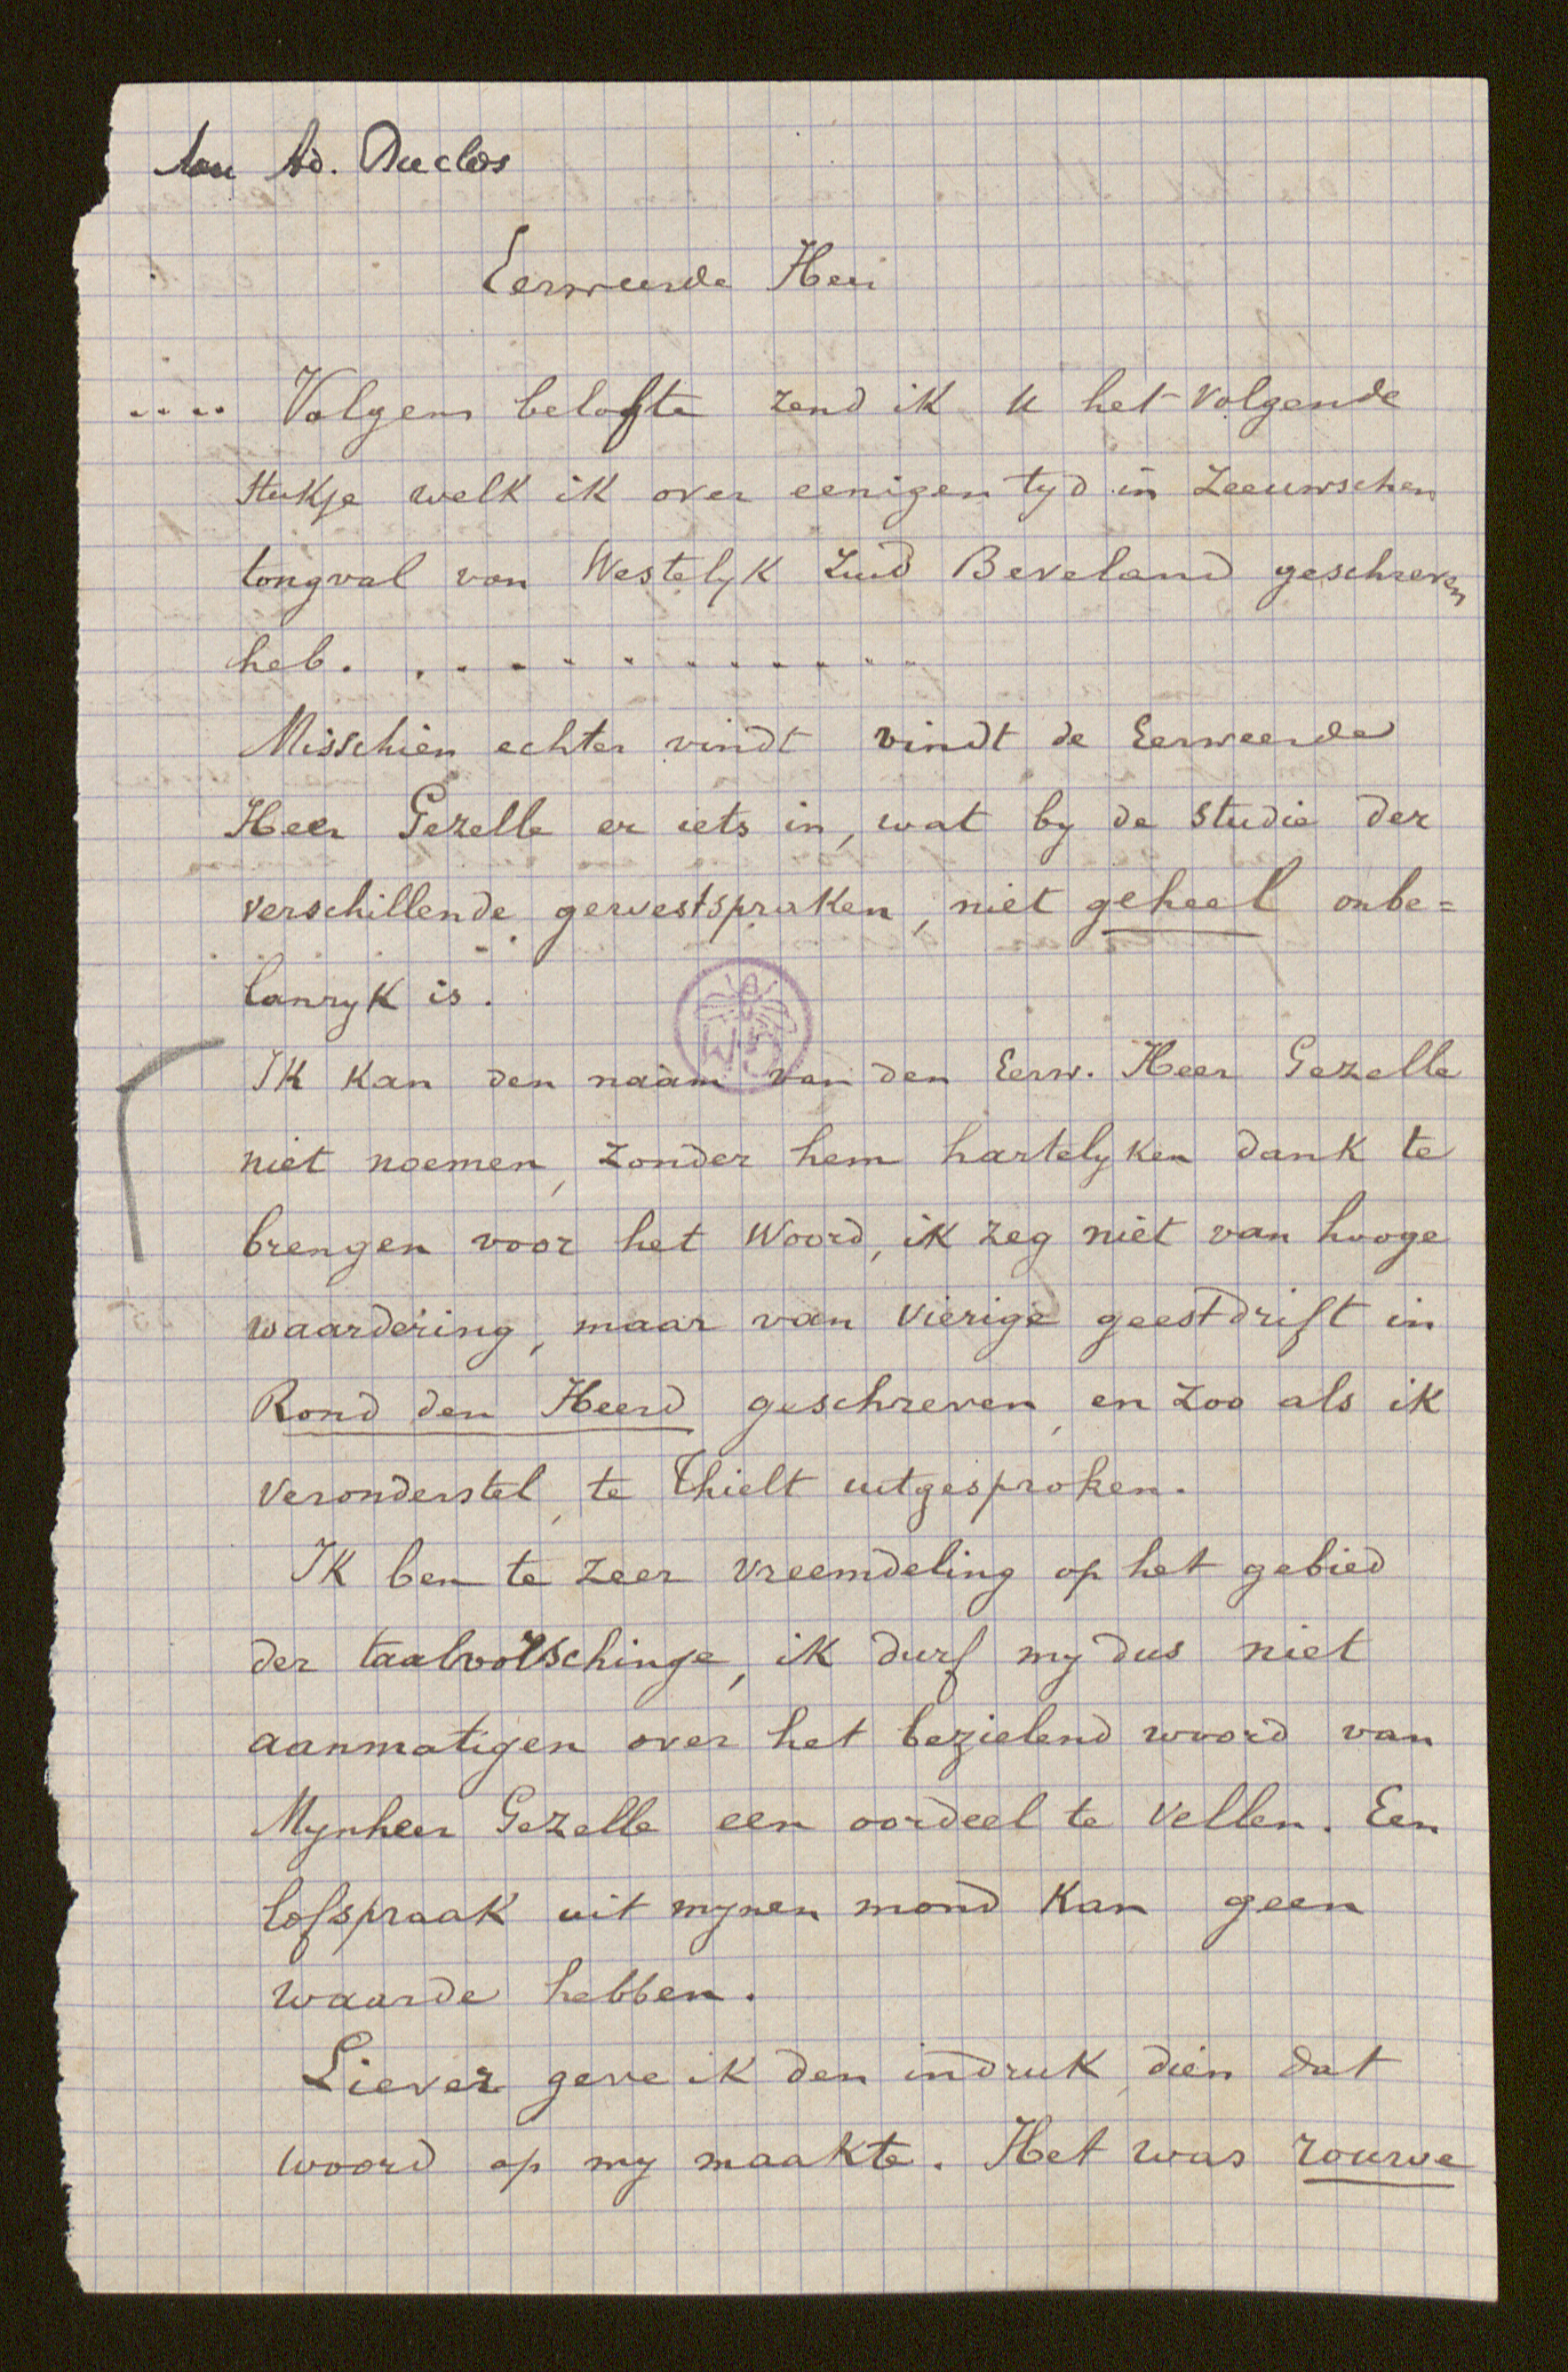 Aan Ad. Duclos
Eerweerde Heer
.... Volgens belofte zend ik U het volgende
stukje welk ik over eenigen tyd in Zeeuwschen
tongval van Westelyk Zuid Beveland geschreven
heb. . . . . . . . . . . .
Misschien echter vindt vindt de Eerweerde
Heer Gezelle er iets in, wat by de studie der
verschillende gewestspraken, niet geheel onbe=
lanryk is.
Ik kan den naam van den Eerw. Heer Gezelle
niet noemen, zonder hem hartelyken dank te
brengen voor het Woord, ik zeg niet van hooge
waardering, maar van vierige geestdrift in
Rond den Heerd geschreven, en zoo als ik
veronderstel, te Thielt uitgesproken.
Ik ben te zeer vreemdeling op het gebied
der taalvorschinge, ik durf my dus niet
aanmatigen over het bezielend woord van
Mynheer Gezelle een oordeel te vellen. Een
lofspraak uit mynen mond kan geen
waarde hebben.
Liever geve ik den indruk, dien dat
woord op my maakte. Het was rouwe